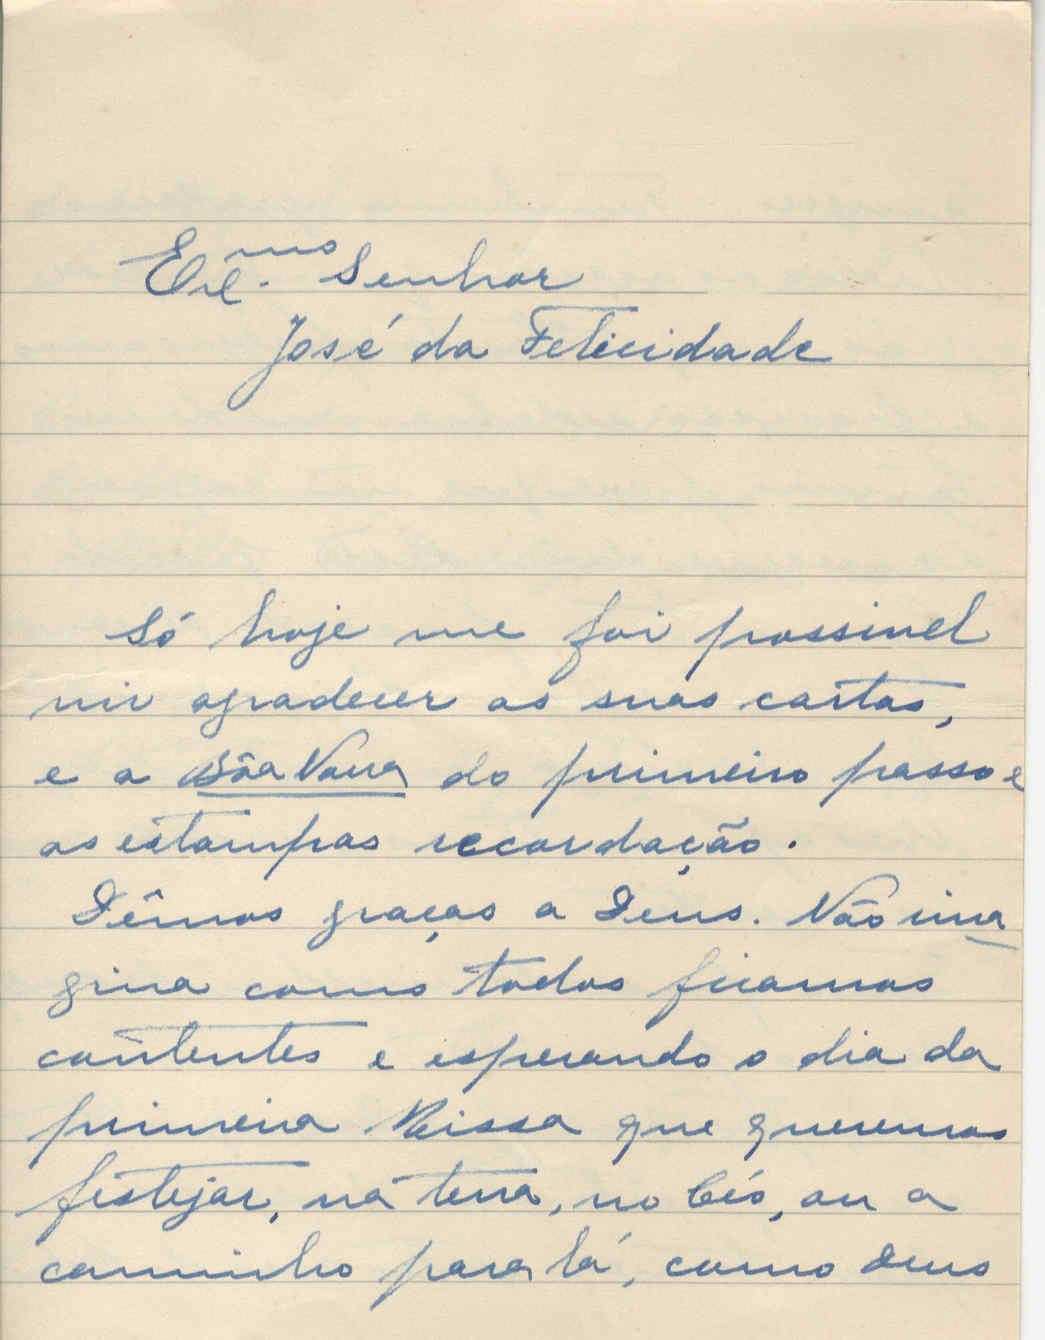 Exmo. Senhor
José da Felicidade
Só hoje me foi possivel
vir agradecer as suas cartas,
e a Bôa Nova do primeiro passo e
as estampas recordação.
Dêmos graças a Deus. Não ima
gina como todos ficamos
contentes e esperando o dia da
primeira Missa que queremos
festejar, na terra, no Céo, ou a
caminho para lá, como Deus